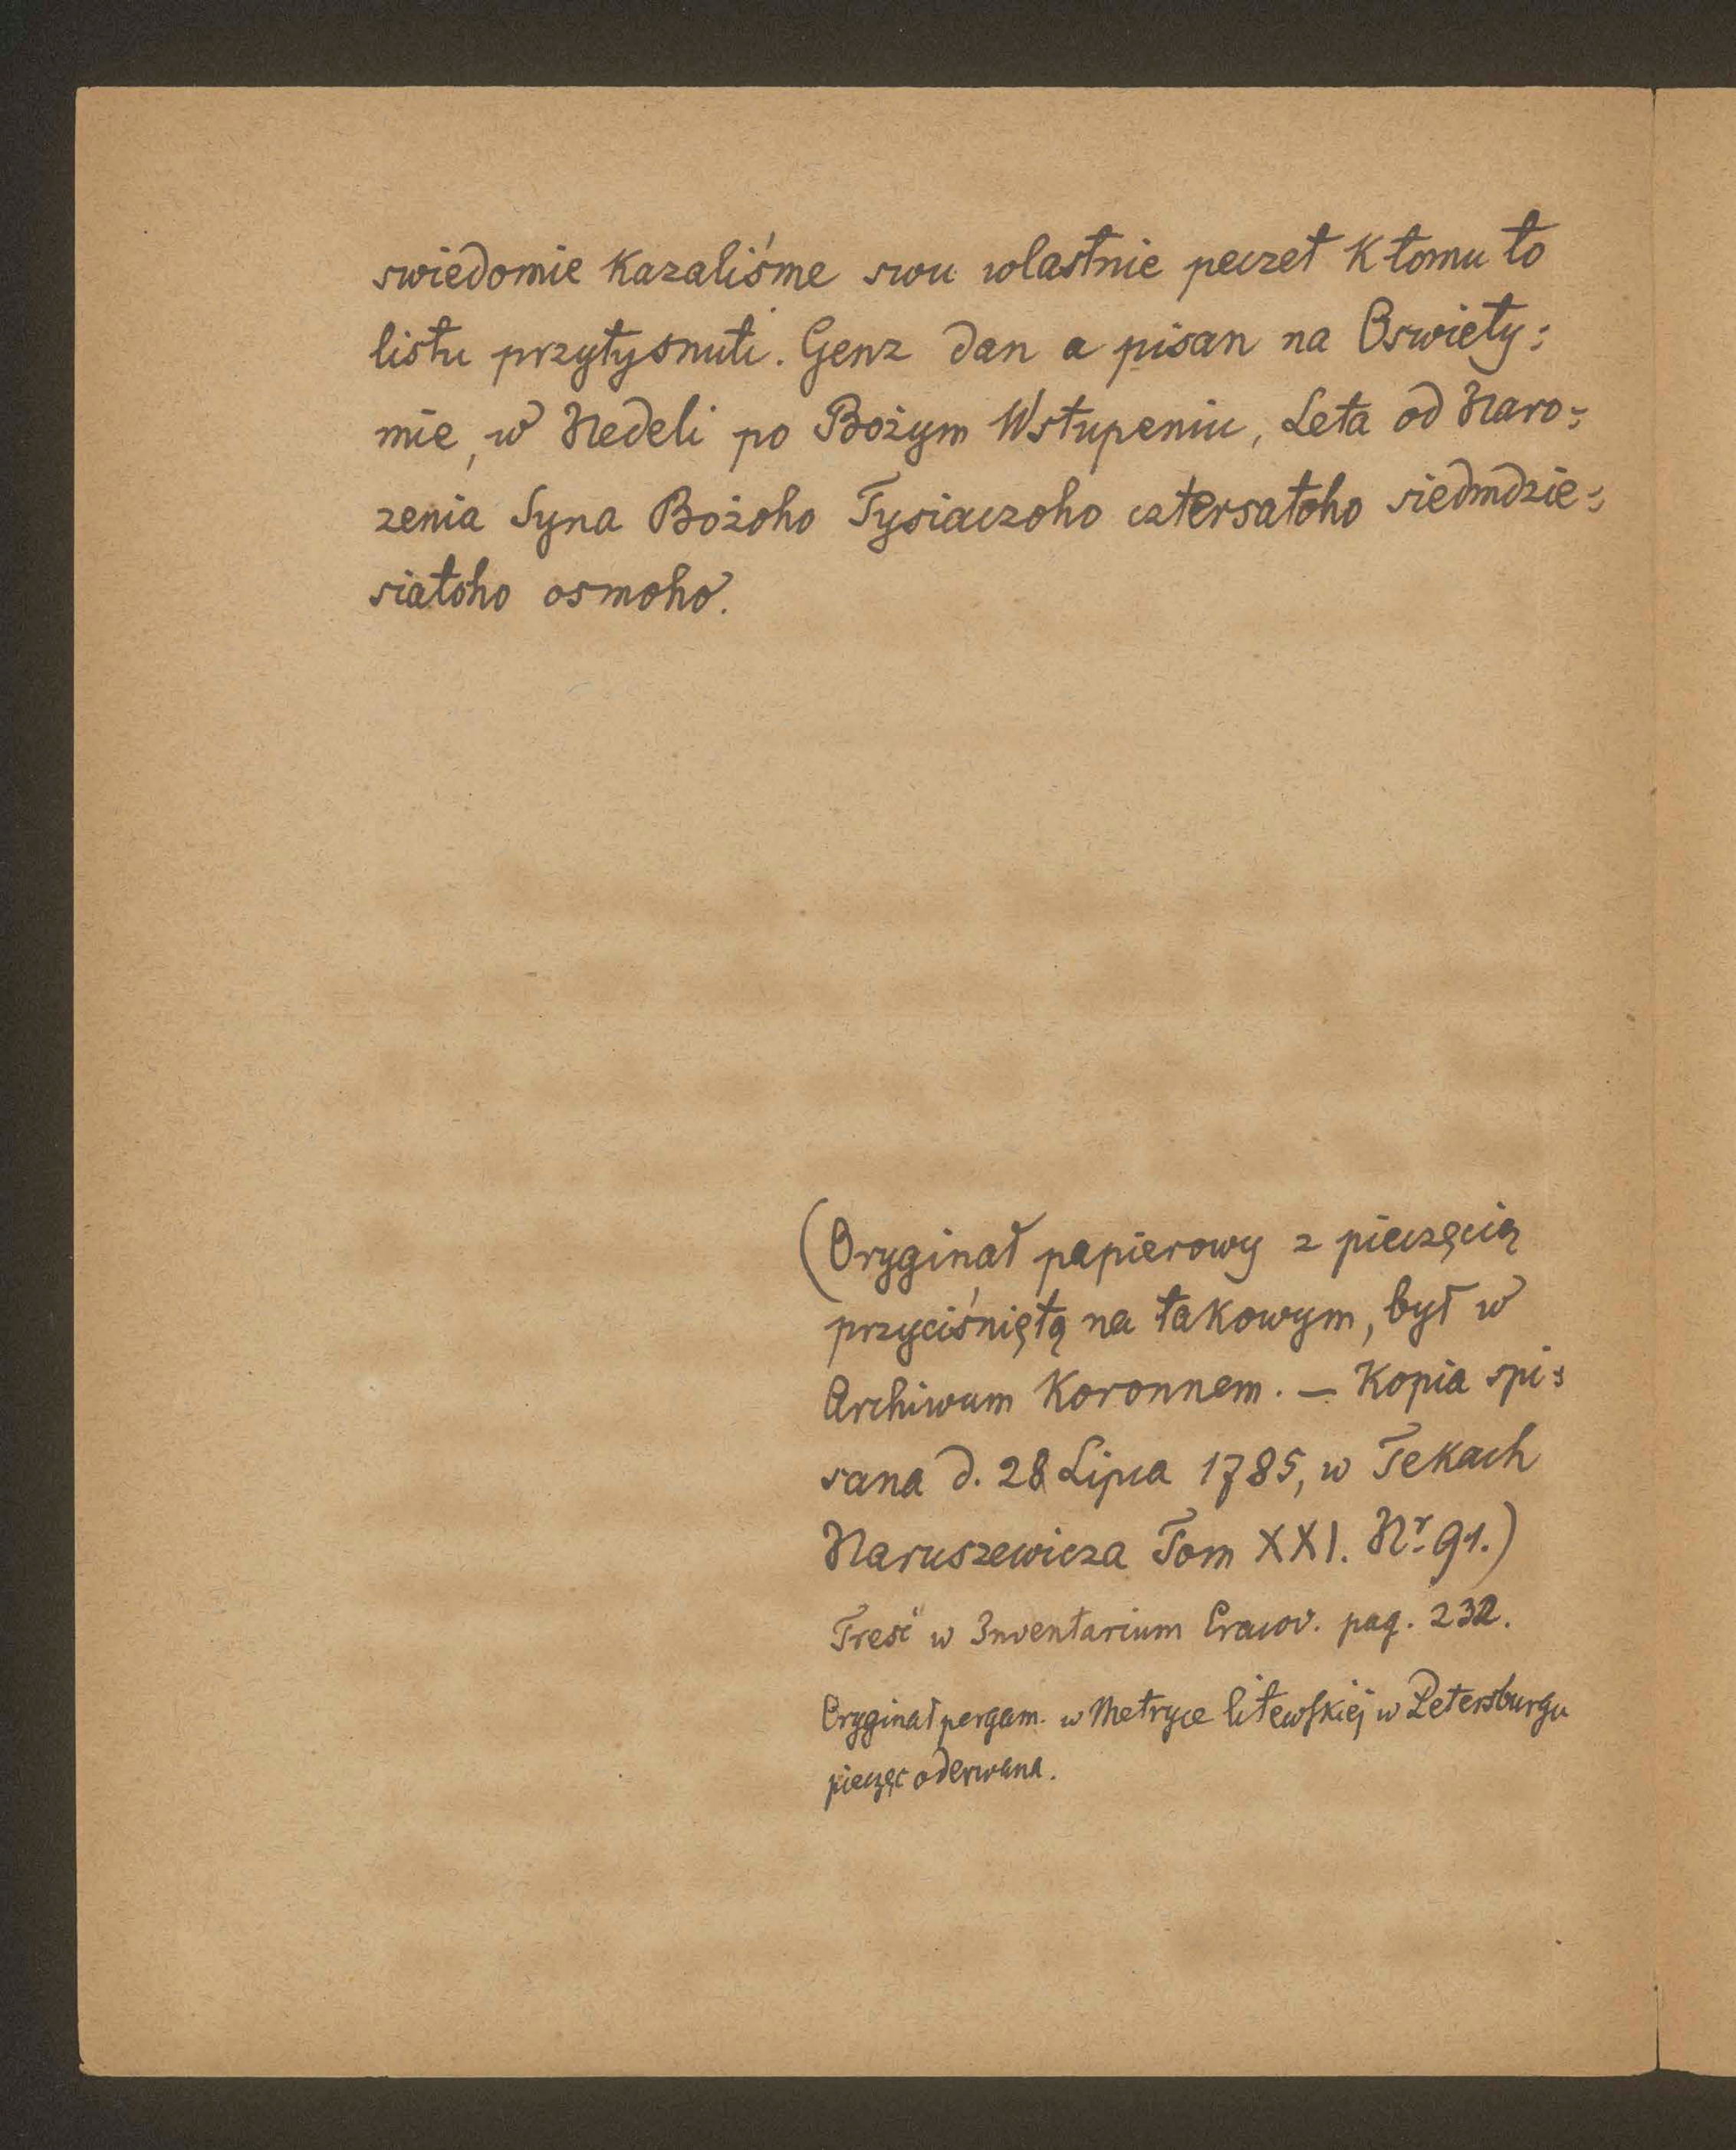 swiedomie kazaliśme swu wlastnie peczet K tomu to
listu przytysnuti. Genz dan a pisan na Oswiety:
mie, w Nedeli po Bożym Wstupeniu, Leta od Naro:
zenia Syna Bożoho Tysiaczoho cztersatoho siedmdzie:
siatoho osmoho.
(Oryginał papierowy z pieczęcią
przyciśniętą na takowym, był w
Archiwum Koronnem. — Kopia spi:
sana d. 28 Lipca 1785, w Tekach
Naruszewicza Tom XXI. Nr. 91.)
Treść w Inventarium Cracov. pag. 232.
Oryginał pergam. w Metryce litewskiej w Petersburgu
pieczęc oderwana.